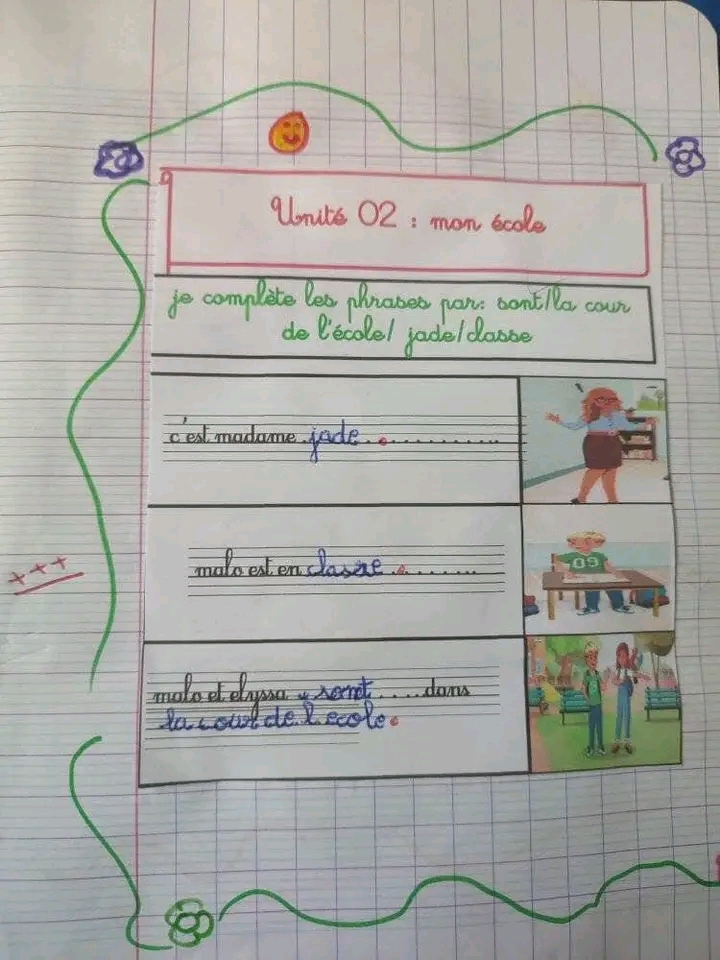 Unité 02 : mon école
je complète les phrases par: sont/la cour
de l'école/ jade/classe
c'est madame jade. ............
malo est en classe. ........
malo et elyssa .. sont .... dans
la cour de l'ecole.
+++
09